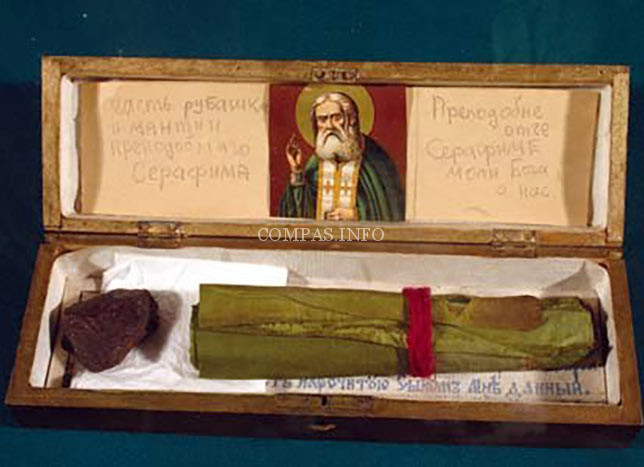 часть рубашки
и мантии
преподобнаго
Серафима
Преподобне
отче
Серафиме
моли Бога
о нас.
COMPAS.INFO
нарочитою мнѣ данный.